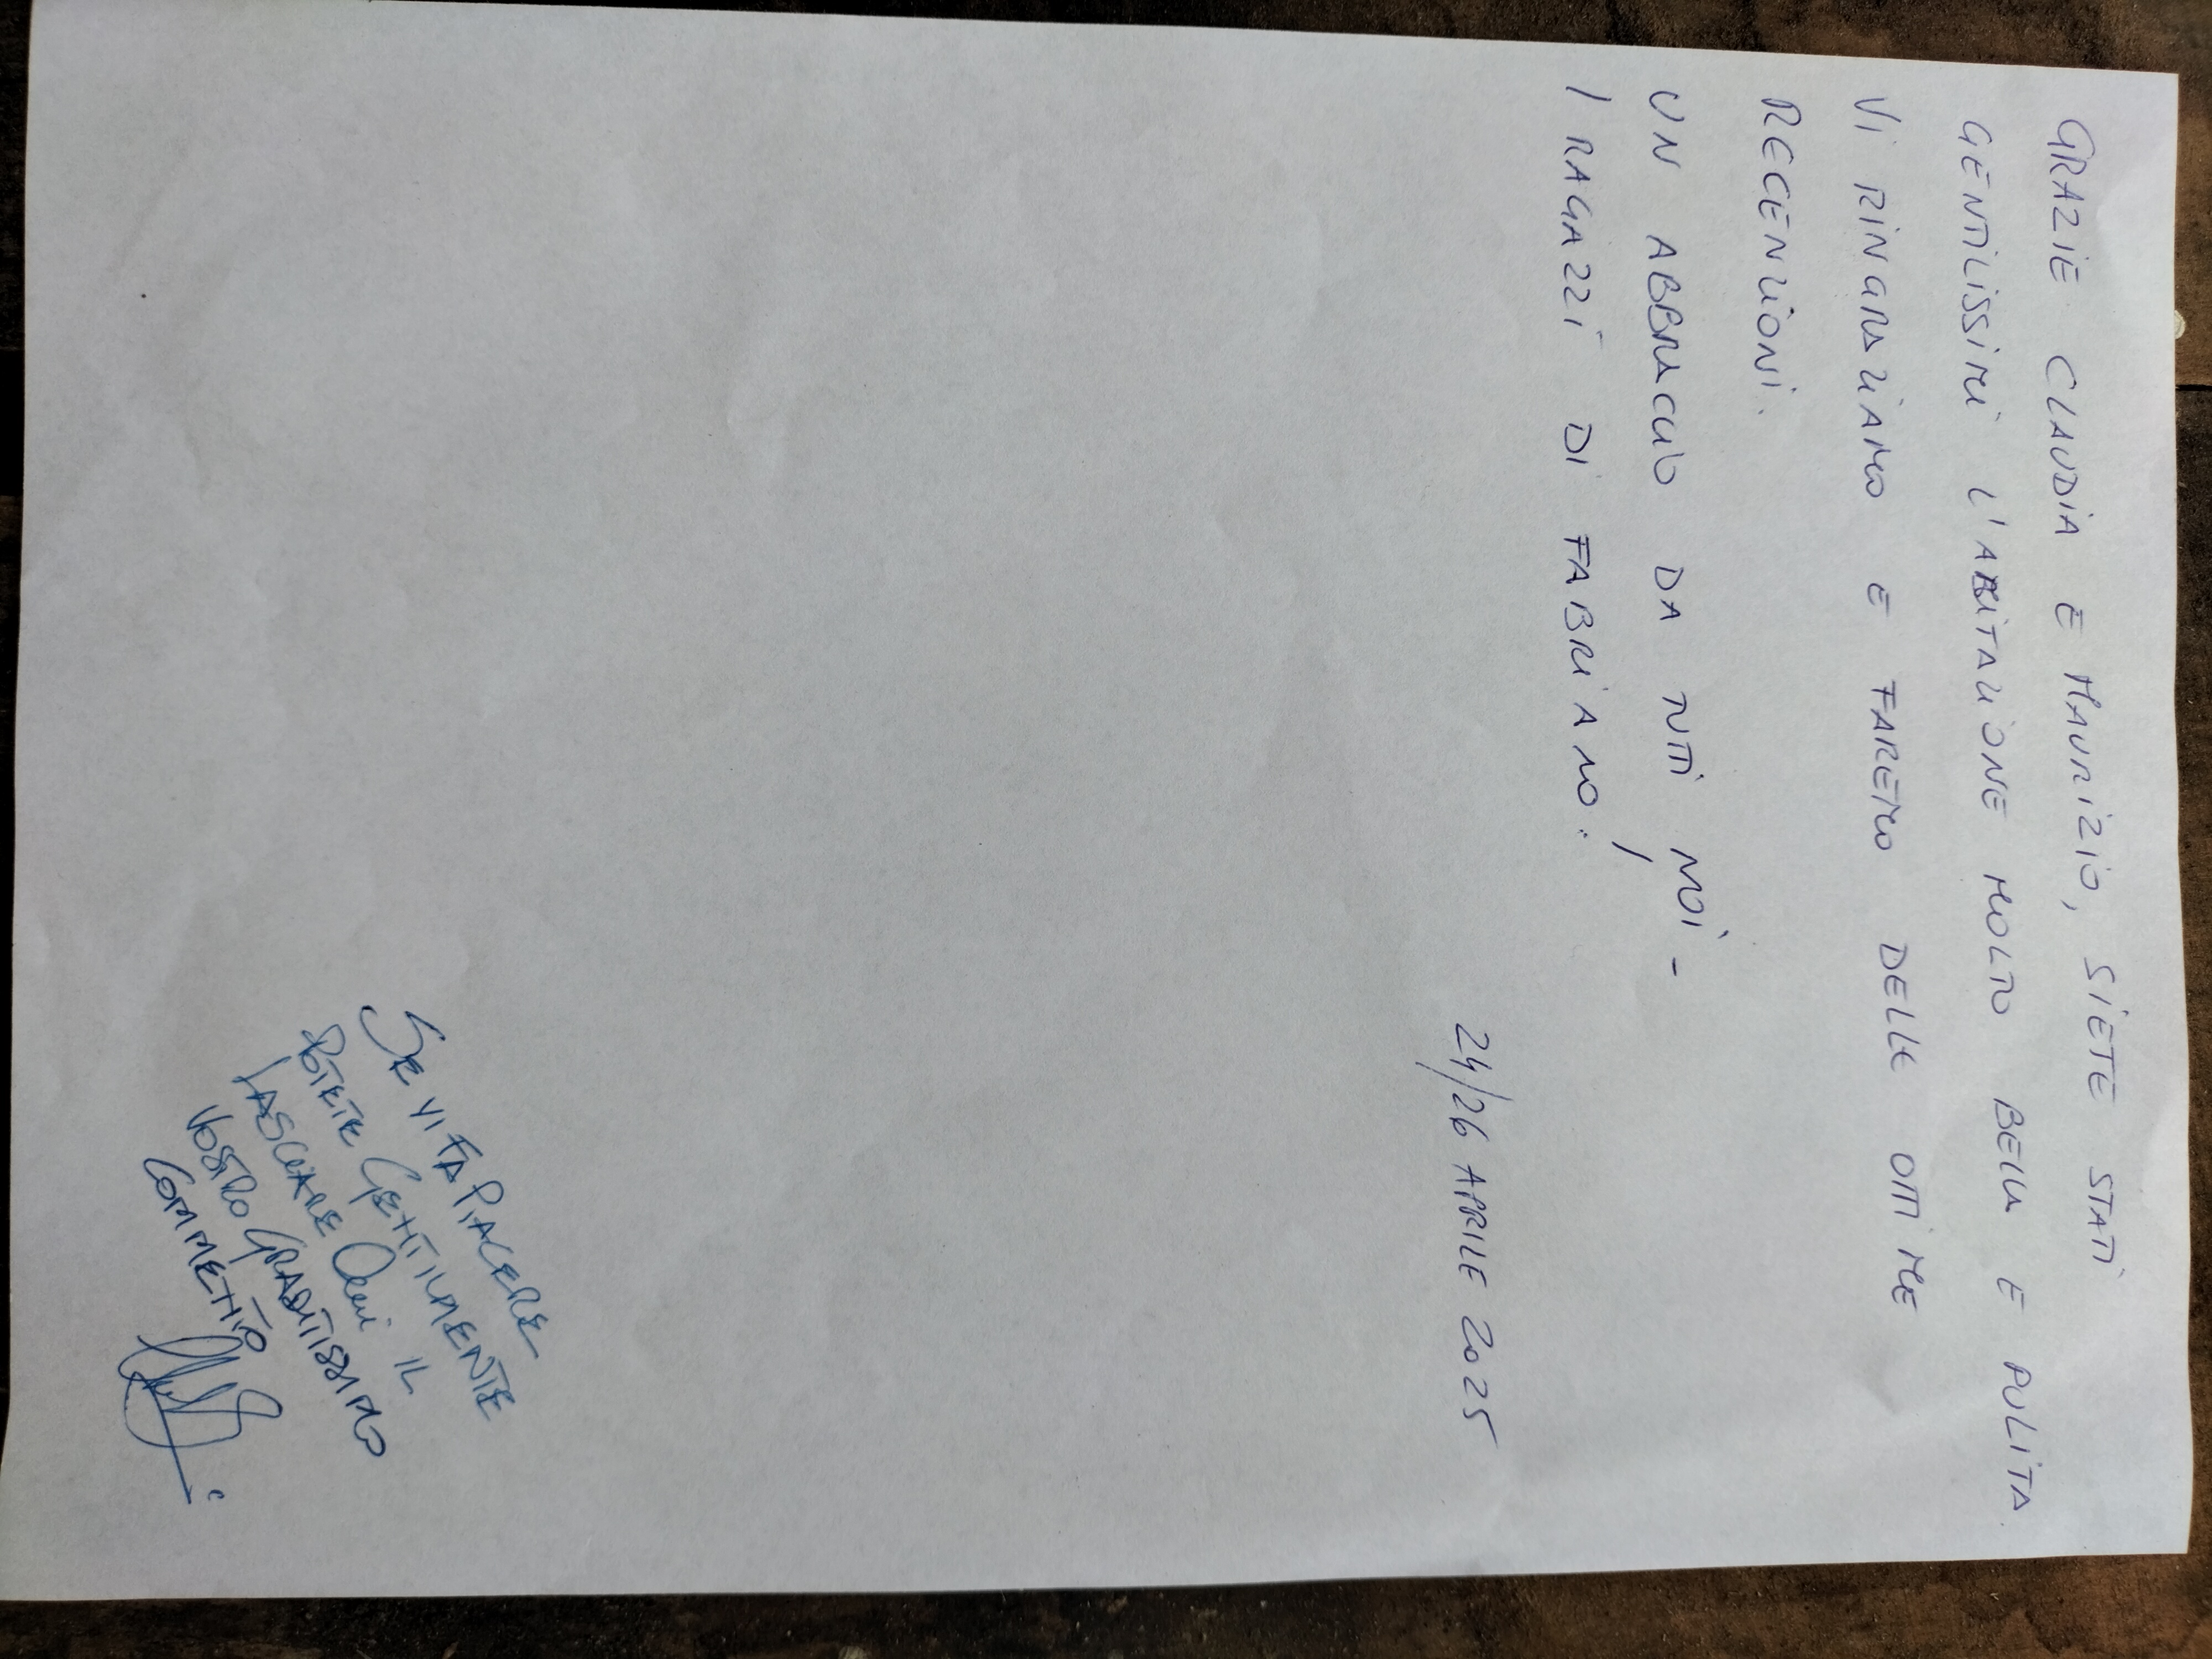 GRAZIE CLAUDIA E MAURIZIO, SIETE STATI
GENTILISSIMI L'ABITAZIONE MOLTO BELLA E PULITA.
VI RINGRAZIAMO E FAREMO DELLE OTTIME
RECENZIONI.
UN ABBRACCIO DA TUTTI NOI -
I RAGAZZI DI FABRIANO.
24/26 APRILE 2025
SE VI FA PIACERE
POTETE GENTILMENTE
LASCIARE QUI IL
VOSTRO GRADITISSIMO
COMMENTO